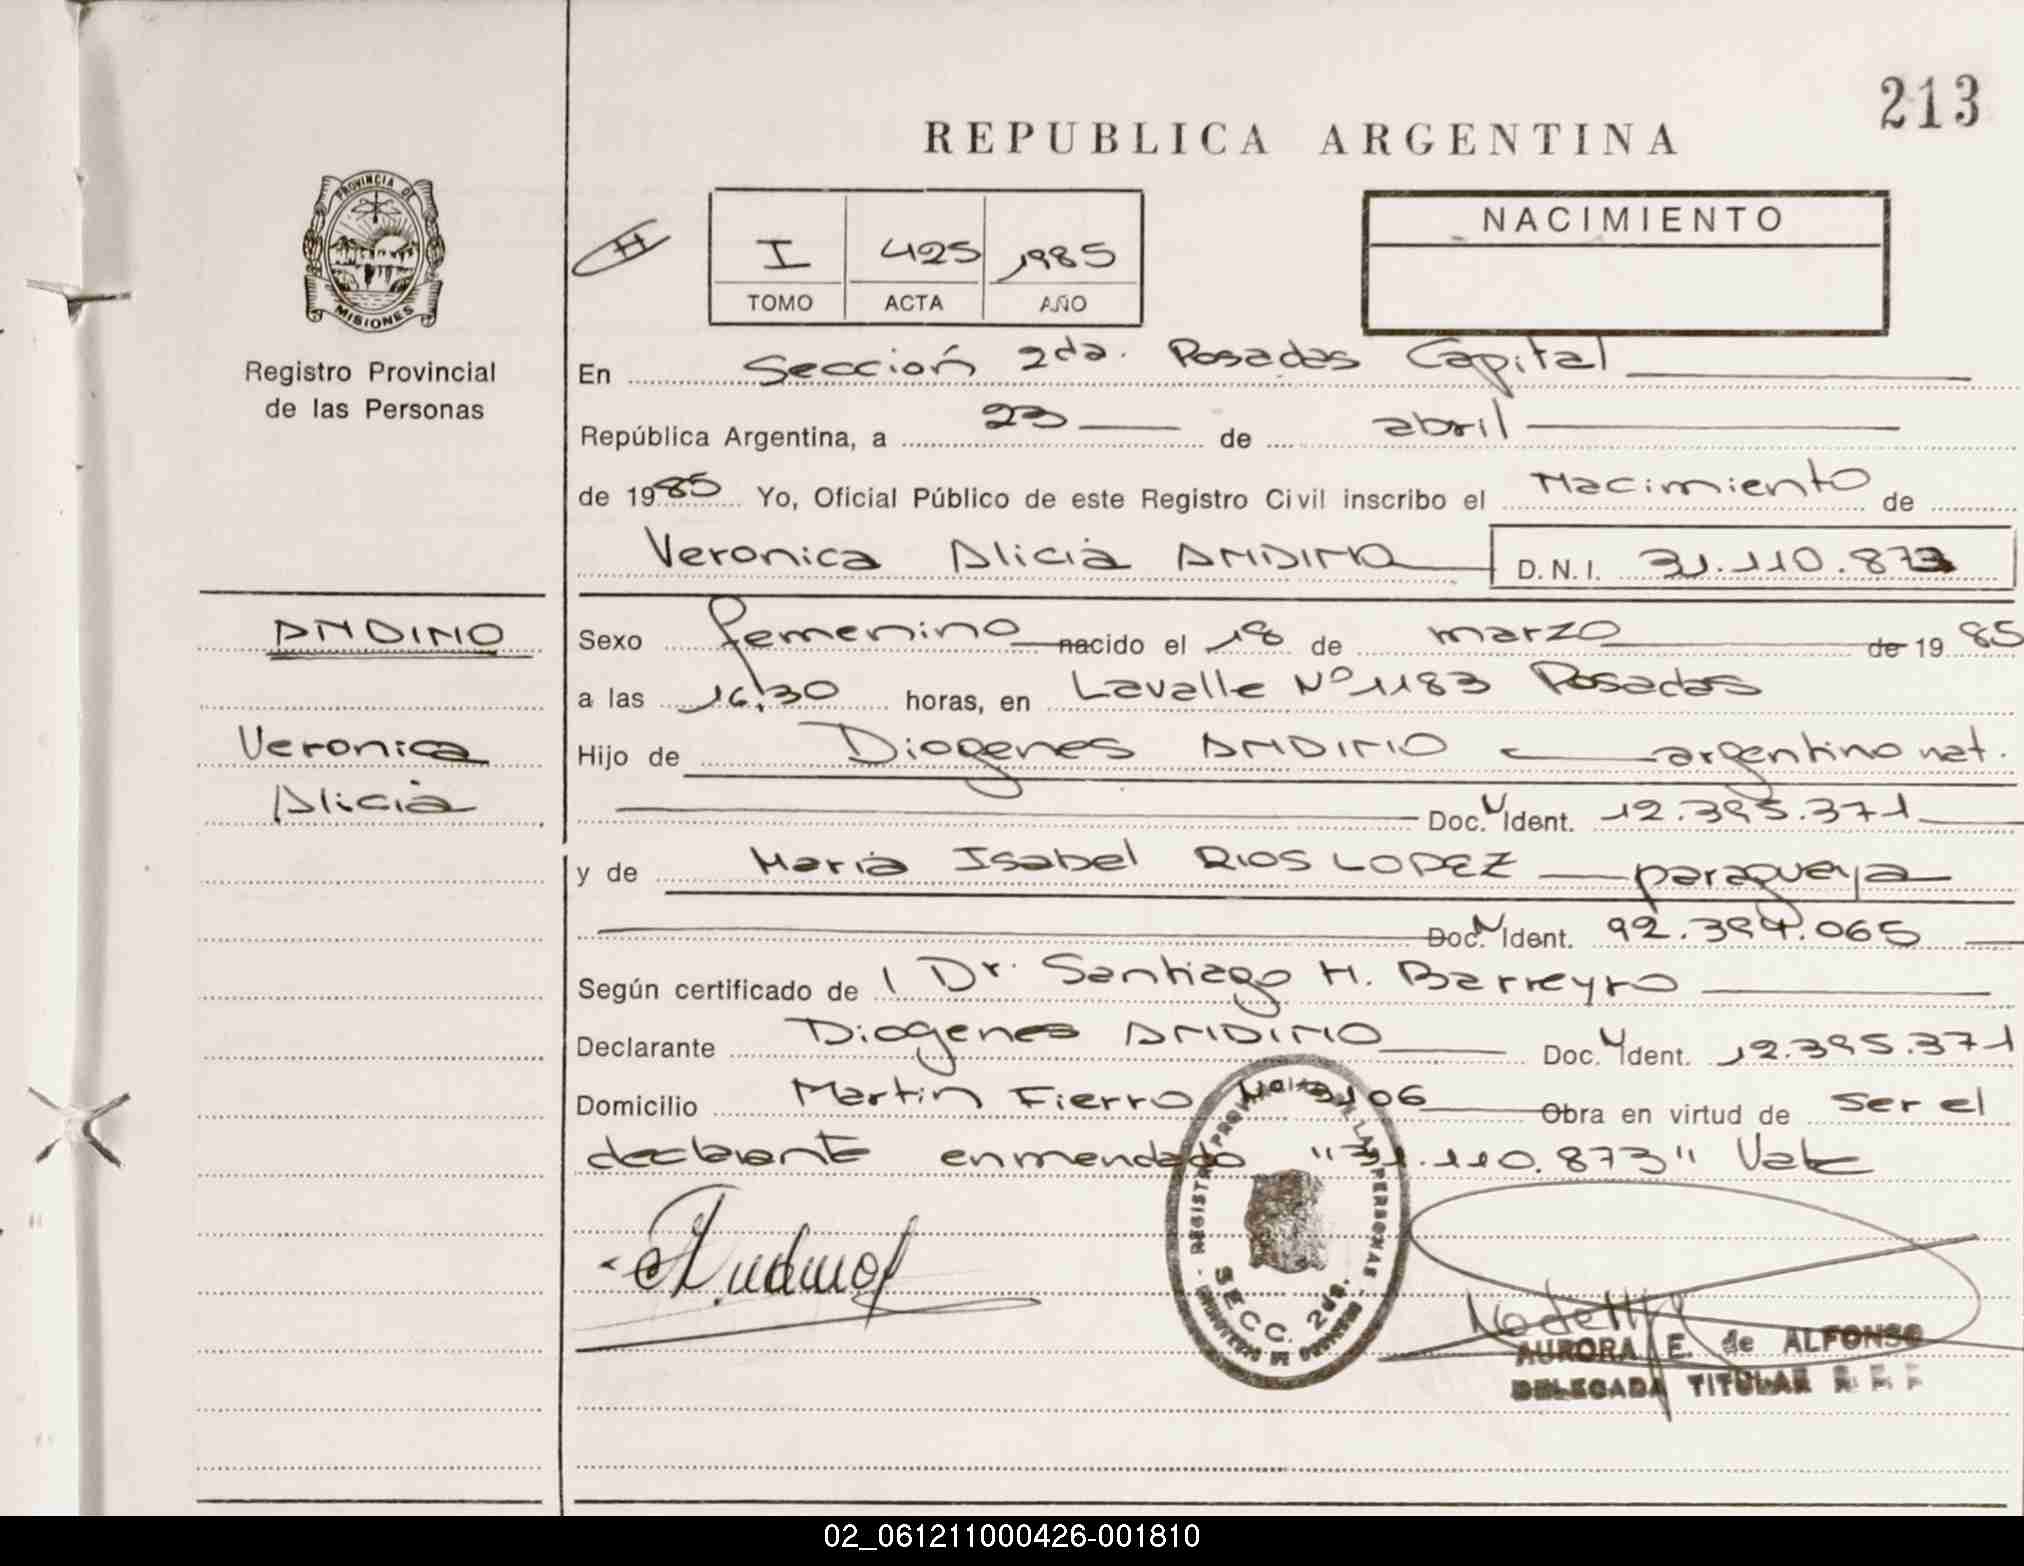 213
REPUBLICA ARGENTINA
PROVINCIA DE
MISIONES
Registro Provincial
de las Personas
I 425 1985
TOMO ACTA AÑO
NACIMIENTO
En Sección 2da. Posadas Capital
República Argentina, a 23 de abril
de 1985 Yo, Oficial Público de este Registro Civil inscribo el Nacimiento de
Veronica Alicia ANDINO D.N.I. 31.110.873
ANDINO
Veronica
Alicia
Sexo femenino nacido el 18 de marzo de 1985
a las 16,30 horas, en Lavalle Nº 1183 Posadas
Hijo de Diogenes ANDINO argentino nat.
Doc. N Ident. 12.395.371
y de Maria Isabel RIOS LOPEZ paraguaya
Doc. N Ident. 92.394.065
Según certificado de Dr. Santiago H. Barreyro
Declarante Diogenes ANDINO Doc. N Ident. 12.395.371
Domicilio Martin Fierro Nº 3106 Obra en virtud de ser el
declarante enmendado "31.110.873" Vale
SECC. 2da.
AURORA E. de ALFONSO
DELEGADA TITULAR
02_061211000426-001810